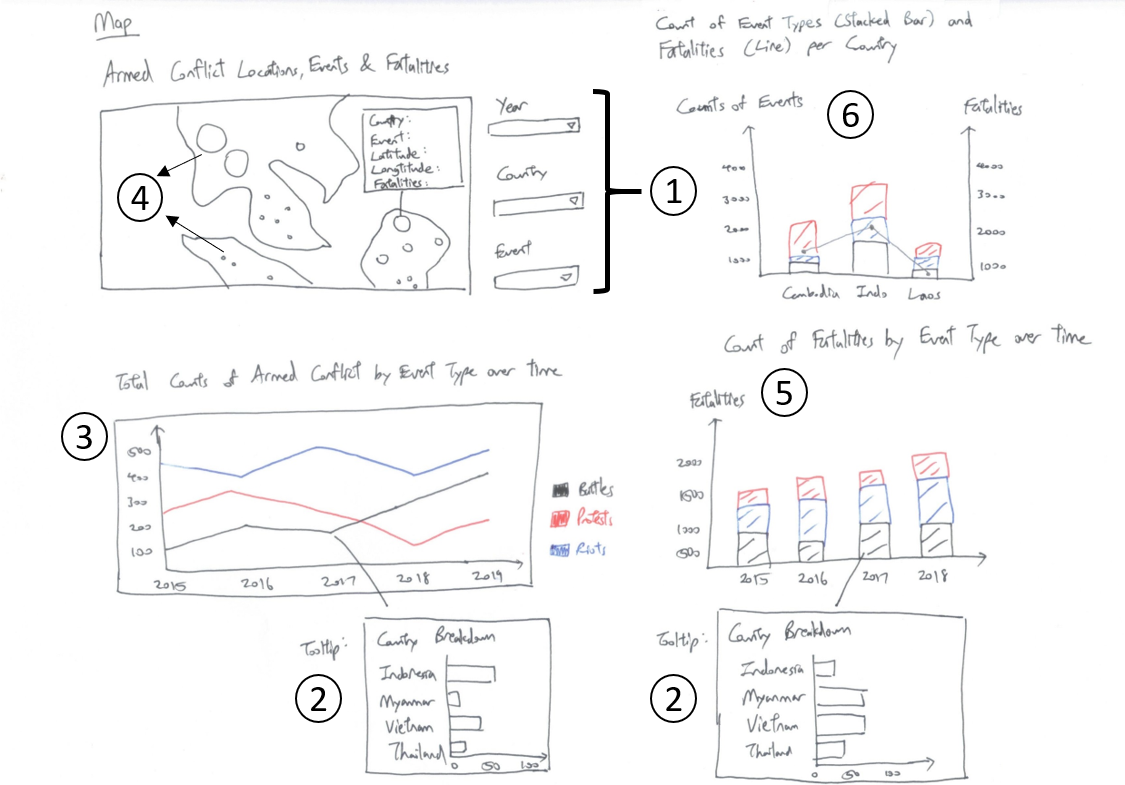 Map
Armed Conflict Locations, Events & Fatalities
Country:
Event:
Latitude:
Longtitude:
Fatalities:
4
Year
Country
Event
1
Count of Event Types (Stacked Bar) and
Fatalities (Line) per Country
Counts of Events
6
Fatalities
400
3000
2000
1000
4000
3000
2000
1000
Cambodia Indo Laos
Total Counts of Armed Conflict by Event Type over time
3
500
400
300
200
100
2015 2016 2017 2018 2019
Battles
Protests
Riots
Tooltip:
2
Country Breakdown
Indonesia
Myanmar
Vietnam
Thailand
0 50 100
Count of Fatalities by Event Type over time
Fatalities
5
2000
1500
1000
500
2015 2016 2017 2018
Tooltip:
2
Country Breakdown
Indonesia
Myanmar
Vietnam
Thailand
0 50 100